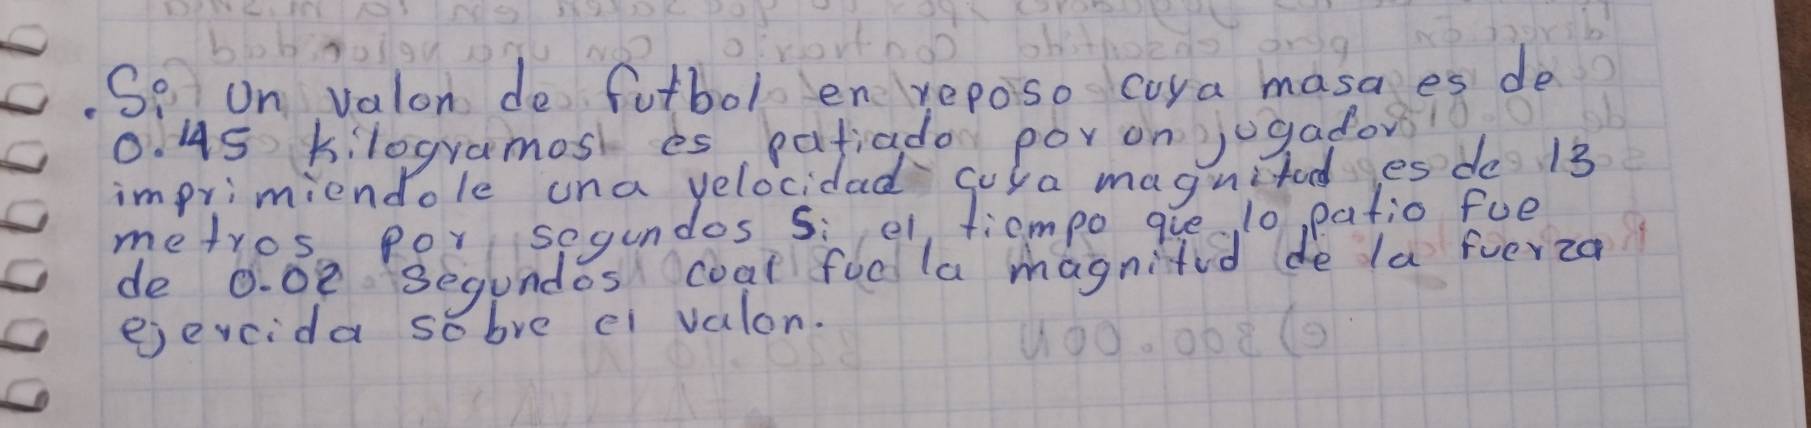 .Si Un valon de futbol en reposo cuya masa es de
0.45 kilogramos es patiado por un jugador
imprimiendole una velocidad cuya magnitud es de 13
metros por segundos Si el tiempo que lo patio fue
de 0.02 segundos cual fue la magnitud de la fuerza
ejercida sobre el valon.